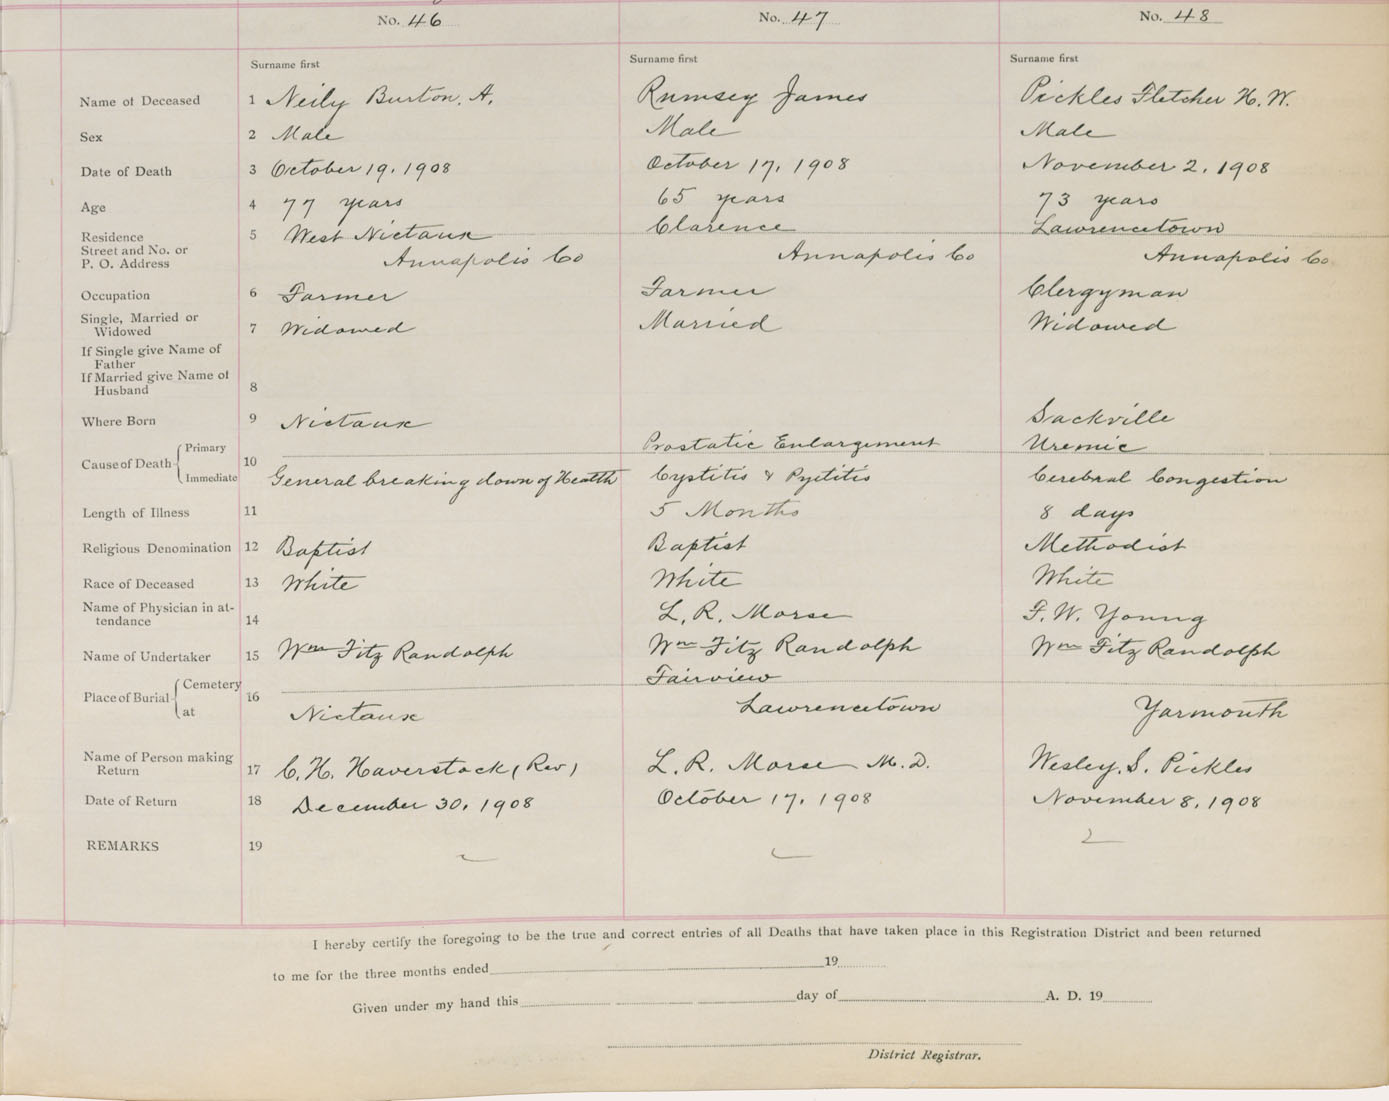 No. 46 No. 47 No. 48
Surname first Surname first Surname first
Name of Deceased 1 Neily Burton. A. Rumsey James Pickles Fletcher H. W.
Sex 2 Male Male Male
Date of Death 3 October 19, 1908 October 17, 1908 November 2, 1908
Age 4 77 years 65 years 73 years
Residence 5 West Nictaux Clarence Lawrencetown
Street and No. or
P. O. Address Annapolis Co Annapolis Co Annapolis Co
Occupation 6 Farmer Farmer Clergyman
Single, Married or
Widowed 7 Widowed Married Widowed
If Single give Name of
Father
If Married give Name of
Husband 8
Where Born 9 Nictaux Sackville
Cause of Death 10
Primary Prostatic Enlargement Uremic
Immediate General breaking down of Health Cystitis & Pyelitis Cerebral Congestion
Length of Illness 11 5 Months 8 days
Religious Denomination 12 Baptist Baptist Methodist
Race of Deceased 13 White White White
Name of Physician in at-
tendance 14 L. R. Morse F. W. Young
Name of Undertaker 15 Wm Fitz Randolph Wm Fitz Randolph Wm Fitz Randolph
Place of Burial 16
Cemetery Fairview
at Nictaux Lawrencetown Yarmouth
Name of Person making
Return 17 C. H. Haverstock (Rev) L. R. Morse M. D. Wesley. S. Pickles
Date of Return 18 December 30, 1908 October 17, 1908 November 8, 1908
REMARKS 19
I hereby certify the foregoing to be the true and correct entries of all Deaths that have taken place in this Registration District and been returned
to me for the three months ended 19
Given under my hand this day of A. D. 19
District Registrar.